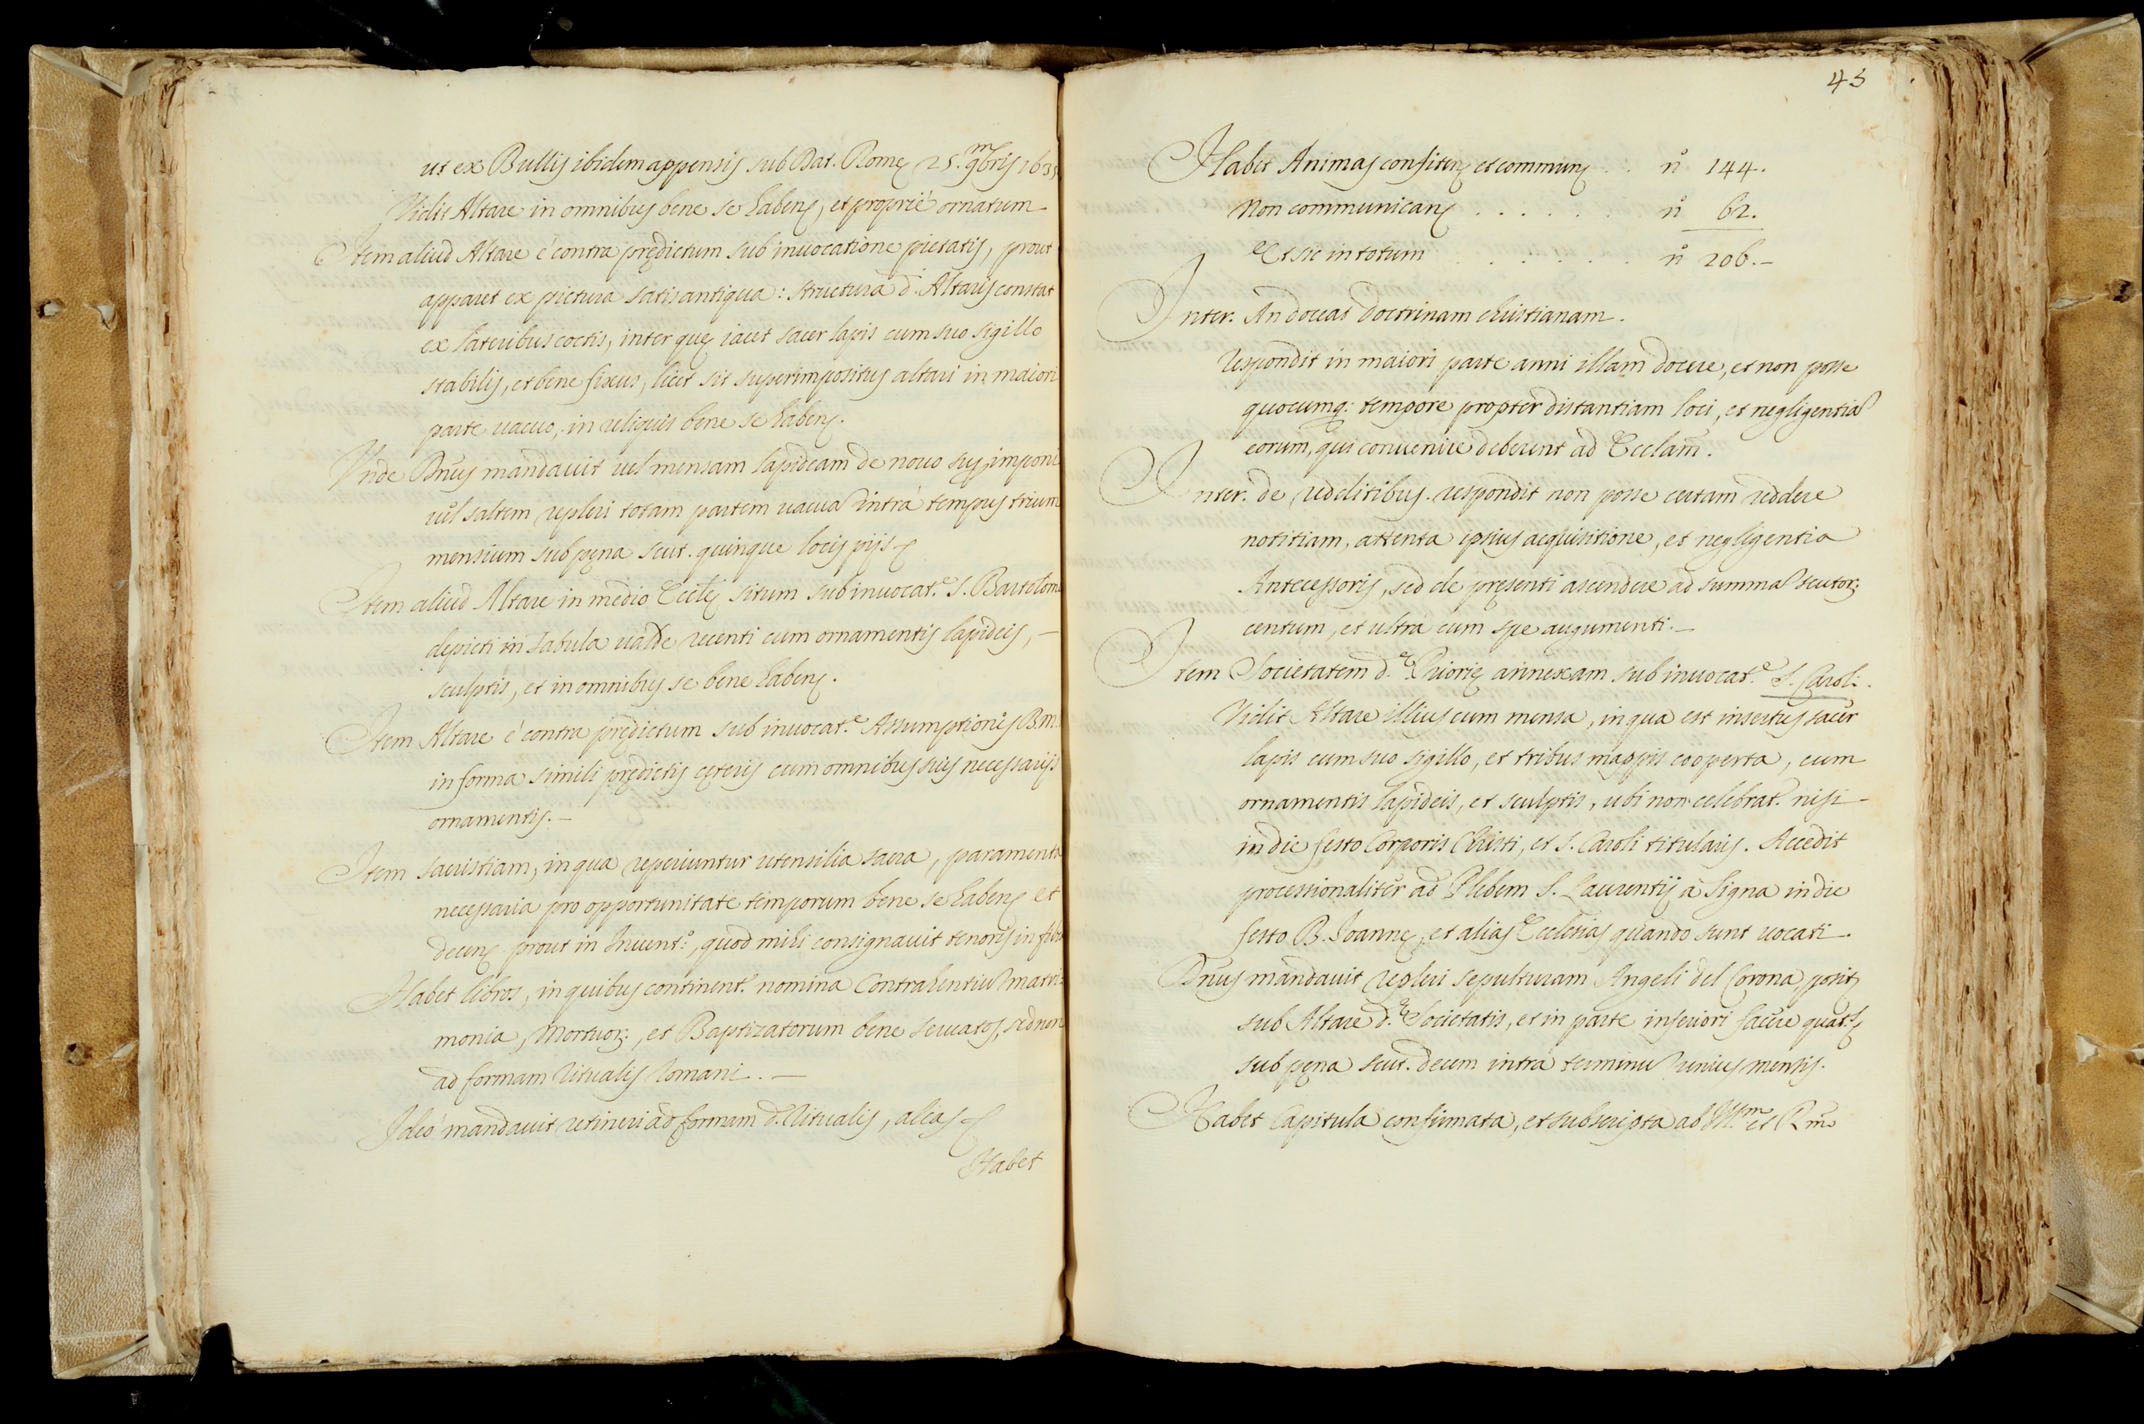 ut ex Bullis ibidem appensis sub Dat. Romę 25. 9mbris 163
Vidit Altare in omnibus bene se habens, et propriè ornatum
Item aliud Altare è contra prędictum sub invocatione pietatis, prout
apparet ex pictura satis antiqua: structura d. Altaris constat
ex lateribus coctis, inter quę iacet sacer lapis cum suo sigillo
stabilis, et bene fixus, licet sit superimpositus altari in maiori
parte vacuo, in reliquis bene se habens.
Unde Dnus mandavit vel mensam lapideam de novo imponi
vel saltem repleri totam partem vacuã intrà tempus trium
mensium sub pęna scut. quinque locis pijs
Item aliud Altare in medio Eccłę situm sub invocat.e S. Bartolom
depicti in tabula valde recenti cum ornamentis lapideis, —
sculptis, et in omnibus se bene habens.
Item Altare è contra prędictum sub invocat.e Assumptionis B.M.
in forma simili prędictis cęteris cum omnibus suis necessarijs
ornamentis. —
Item sacristiam, in qua reperiuntur utensilia sacra, paramenta
necessaria pro opportunitate temporum bene se habens et
decens prout in Invent.o, quod mihi consignavit tenoris infra
Habet libros, in quibus continent. nomina Contrahentiũ matri:
monia, Mortuoȝ:, et Baptizatorum bene servatos, sed non
ad formam Ritualis Romani. —
Ideò mandavit retineri ad formam d. Ritualis, aliàs
Habet
43
Habet Animas confitens et communs . . n.o 144.
Non communicans . . . . . . n.o 62.
Et sic in totum . . . . . . n.o 206. —
Inter. An doceat doctrinam christianam.
respondit in maiori parte anni illam docere, et non posse
quocumq: tempore propter distantiam loci, et negligentiã
eorum, qui convenire deberent ad Ecclam.
Inter. de redditibus. respondit non posse certam reddere
notitiam, attenta ipsius acquisitione, et negligentia
Antecessoris, sed de pręsenti ascendere ad summã scutoȝ
centum, et ultrà cum spe augumenti. —
Item Societatem d.e Priorię annexam sub invocat.e S. Caroli.
Vidit Altare illius cum mensa, in qua est insertus sacer
lapis cum suo sigillo, et tribus mappis cooperta, cum
ornamentis lapideis, et sculptis, ubi non celebrat. nisi —
in die festo Corporis Christi, et S. Caroli titularis. Accedit
processionalitèr ad Plebem S. Laurentij à Signa in die
festo B. Joannis, et alias Ecclesias quando sunt vocati.
Dnus mandavit repleri sepulturam Angeli del Corona, positę
sub Altare d.e Societatis, et in parte inferiori facere
sub pęna scut. decem intrà terminũ unius mensis.
Habet Capitula confirmata, et subscripta ab Ill.mo et R.mo